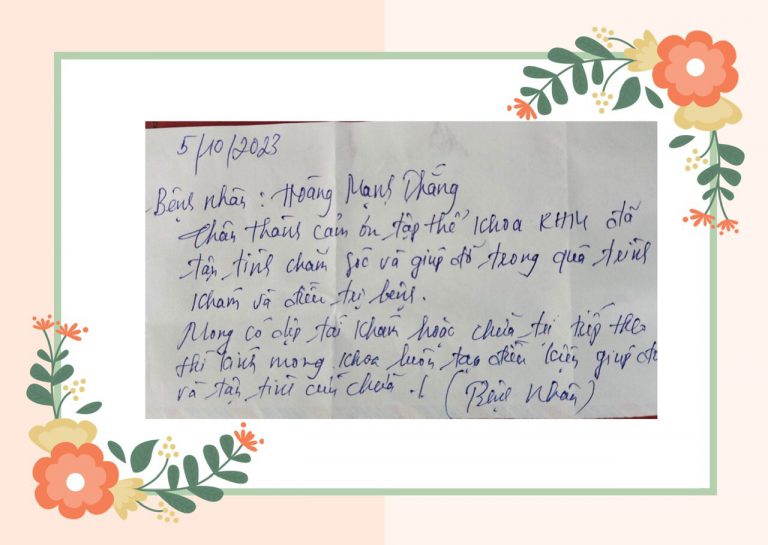 5/10/2023
Bệnh nhân : Hoàng Mạnh Thắng
Chân thành cảm ơn tập thể khoa RHM đã
tận tình chăm sóc và giúp đỡ trong quá trình
khám và điều trị bệnh.
Mong có dịp tái khám hoặc chữa trị tiếp theo
thì kính mong khoa luôn tạo điều kiện giúp đỡ
và tận tình cứu chữa ./. (Bệnh Nhân)